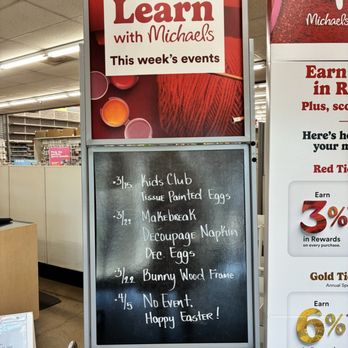 Learn
with Michaels
This week's events
• 3/15 Kids Club
Tissue Painted Eggs
• 3/22 Makebreak
Decoupage Napkin
Dec. Eggs
• 3/22 Bunny Wood Frame
• 4/5 No Event,
Happy Easter!
Michaels
Earn
in R
Plus, sco
Here's h
your m
Red Ti
Earn
3%
in Rewards
on every purchase.
Gold Ti
Annual Spe
Earn
6%